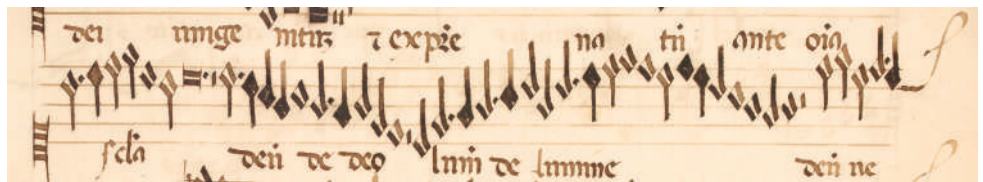 dei unige nitũ ⁊ ex pr̃e na tũ ante oĩa
scl̃a deũ de deo lumẽ de lumine deũ ve